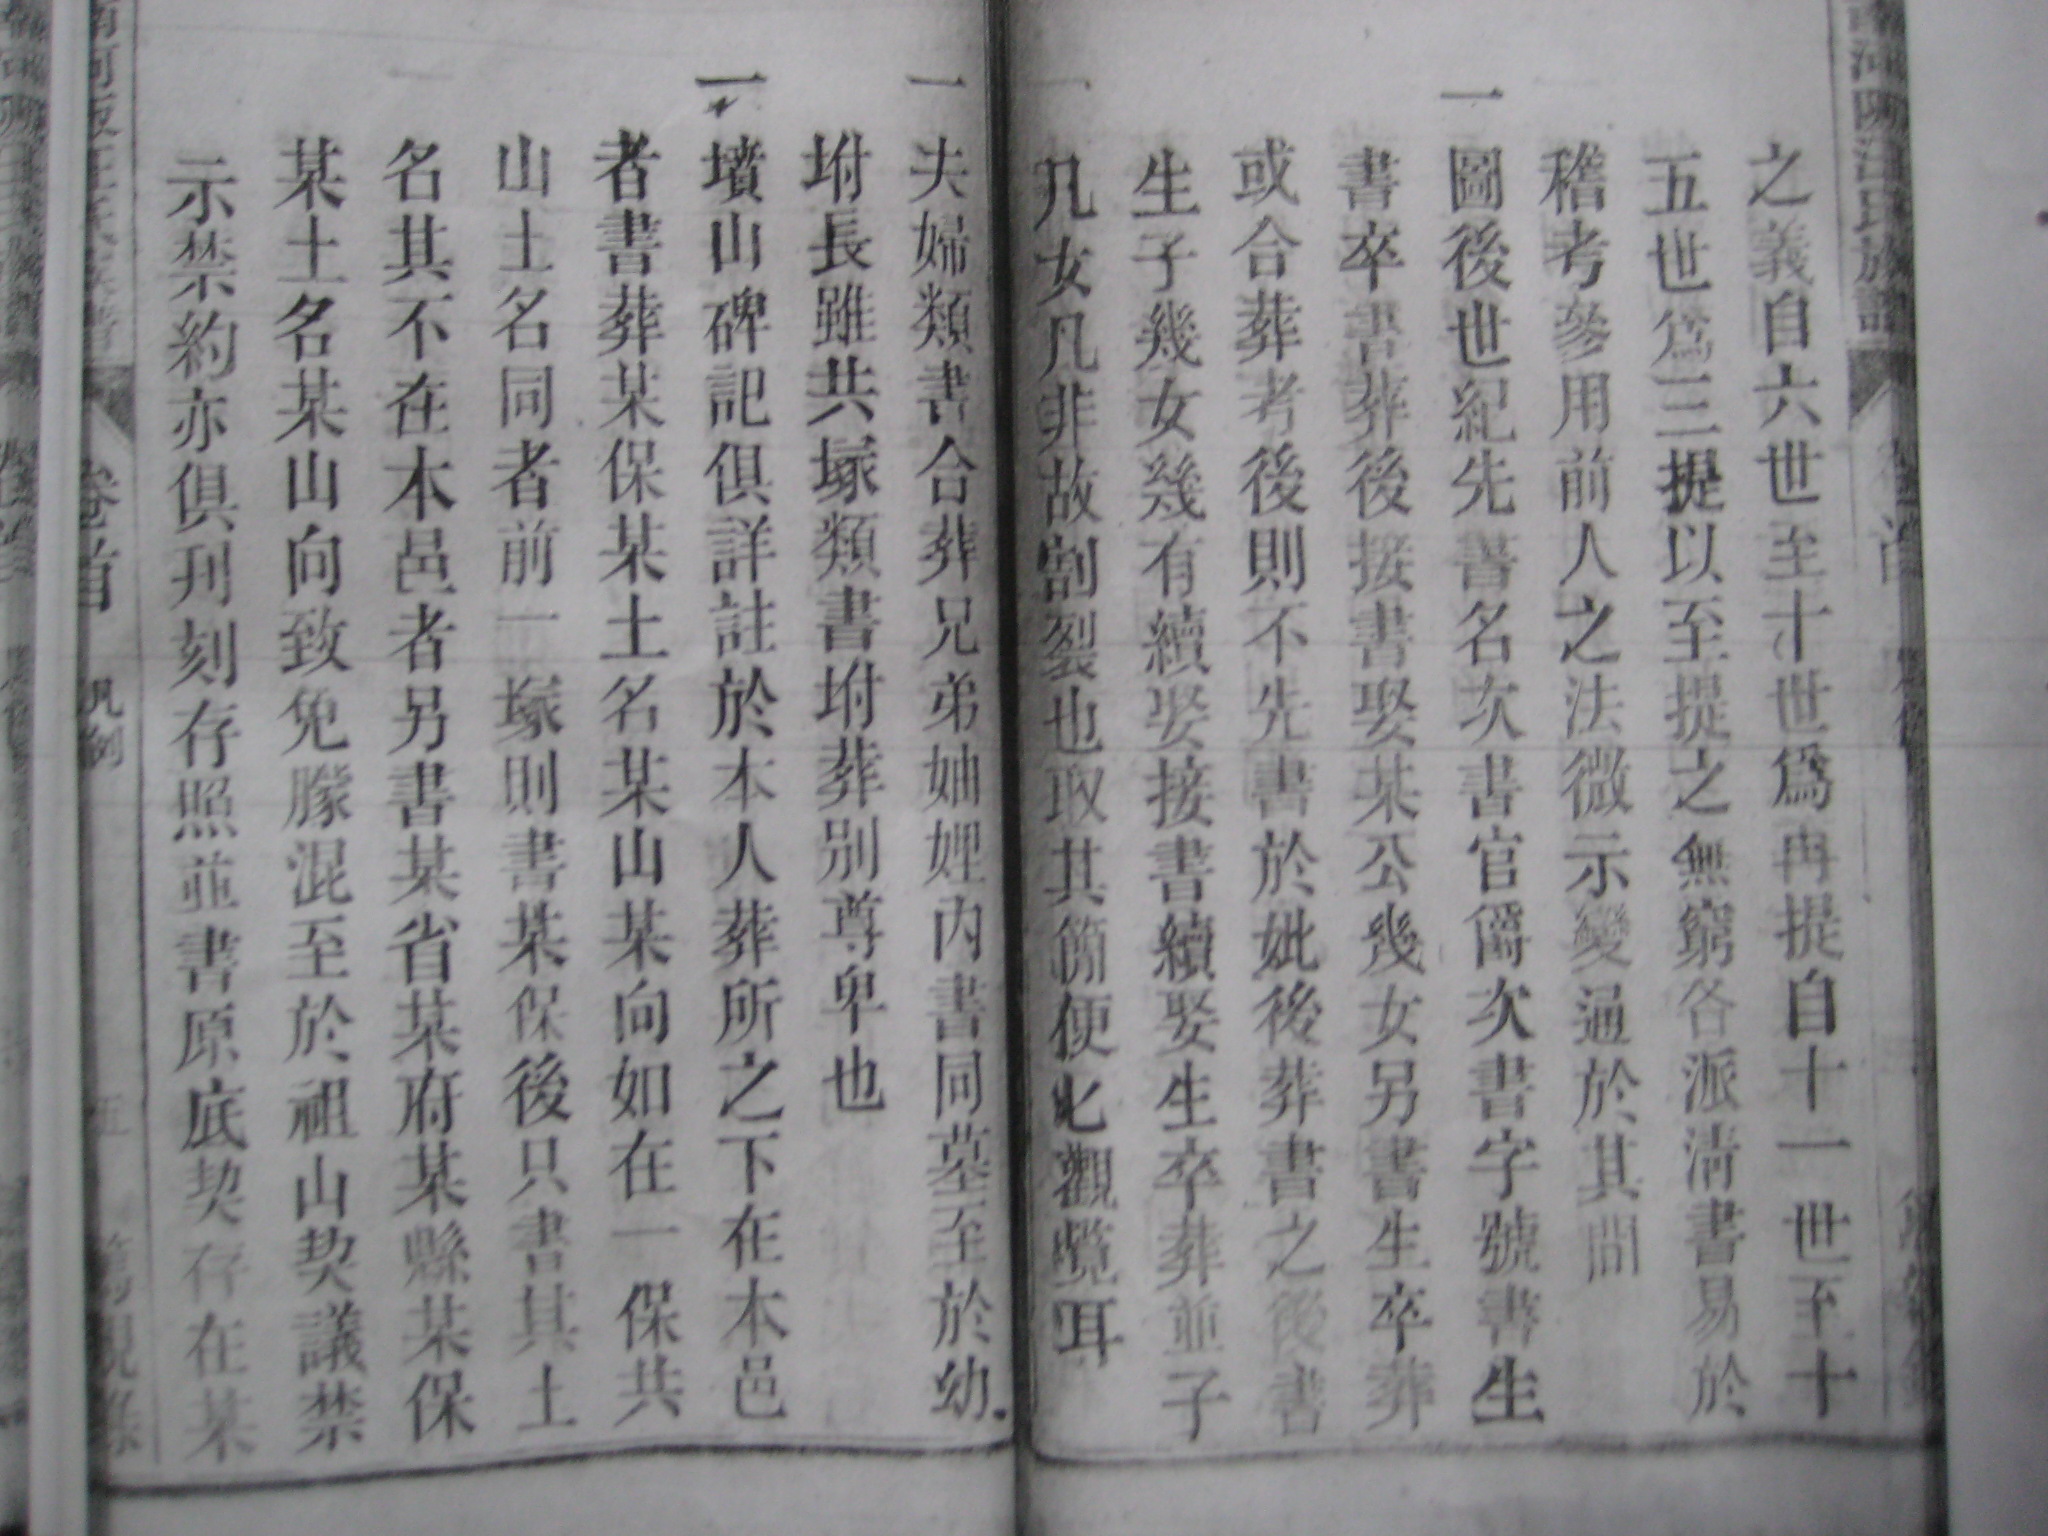 之義自六世至十世爲再提自十一世至十
五世爲三提以至提之無窮各派淸書易於
稽考參用前人之法微示變通於其間
一圖後世紀先書名次書官爵次書字號書生
書卒書葬後接書娶某公幾女另書生卒葬
或合葬考後則不先書於妣後葬書之後書
生子幾女幾有續娶接書續娶生卒葬並子
凡女凡非故割裂也取其簡便化觀覽耳
一夫婦類書合葬兄弟妯娌內書同墓至於幼
坿長雖共塚類書坿葬別尊卑也
一墳山碑記俱詳註於本人葬所之下在本邑
者書葬某保某土名某山某向如在一保共
山土名同者前一塚則書某保後只書其土
名其不在本邑者另書某省某府某縣某保
某土名某山向致免朦混至於祖山契議禁
示禁約亦俱刊刻存照並書原底契存在某
卷首 凡例 五